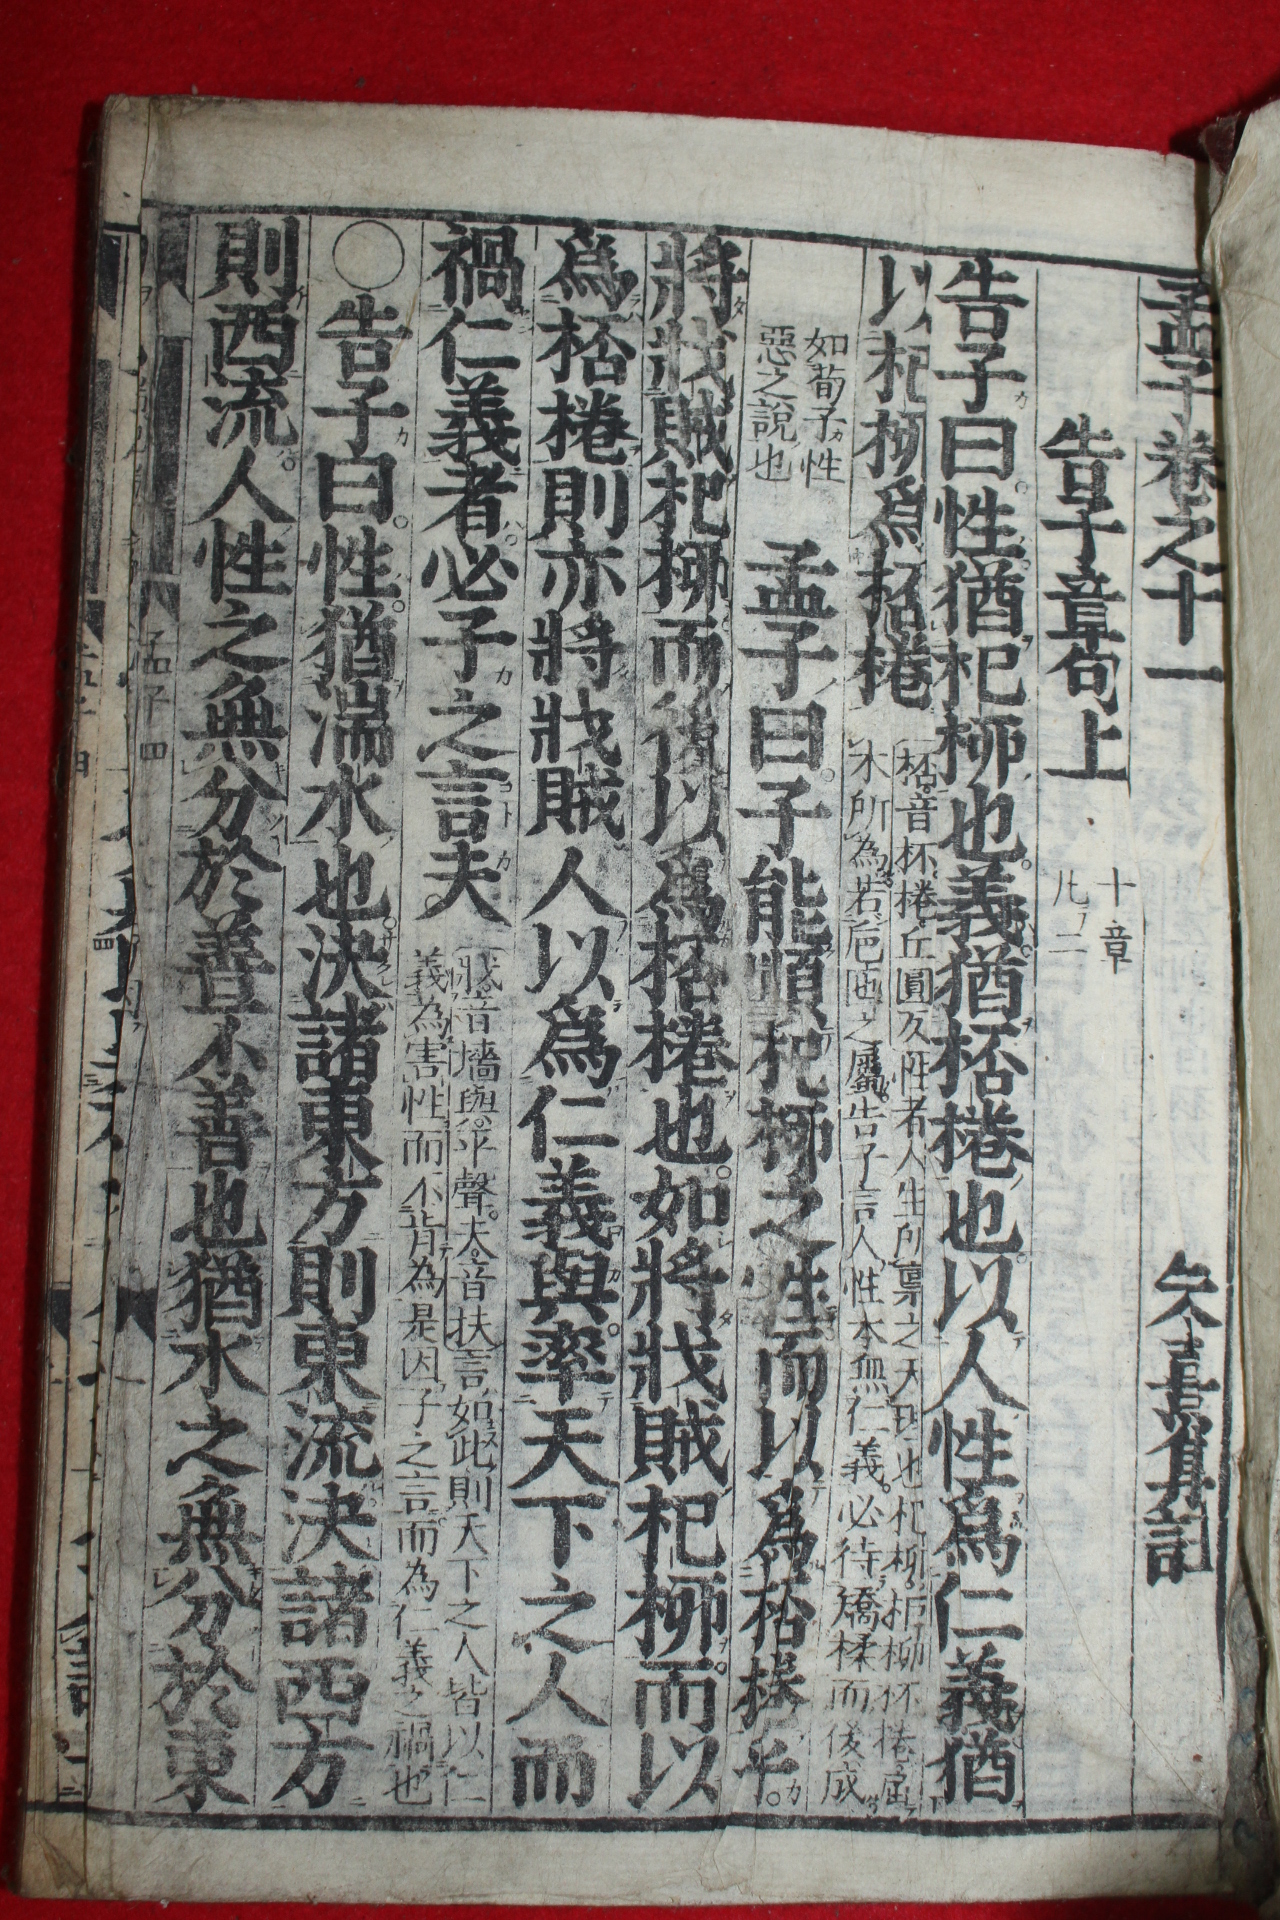 孟子卷之十一
朱熹集註
告子章句上
凡二十章
告子曰性猶杞柳也義猶桮棬也以人性爲仁義猶
以杞柳爲桮棬
桮音杯棬丘圓反性者人生所稟之天理也杞柳柜柳桮棬屈
木所為若巵匜之屬告子言人性本無仁義必待矯揉而後成
如荀子性
惡之說也
孟子曰子能順杞柳之性而以爲桮棬乎
將戕賊杞柳而後以爲桮棬也如將戕賊杞柳而以
爲桮棬則亦將戕賊人以爲仁義與率天下之人而
禍仁義者必子之言夫
戕音墻與平聲夫音扶言如此則天下之人皆以仁
義為害性而不肯為是因子之言而為仁義之禍也
○告子曰性猶湍水也決諸東方則東流決諸西方
則西流人性之無分於善不善也猶水之無分於東
孟子四